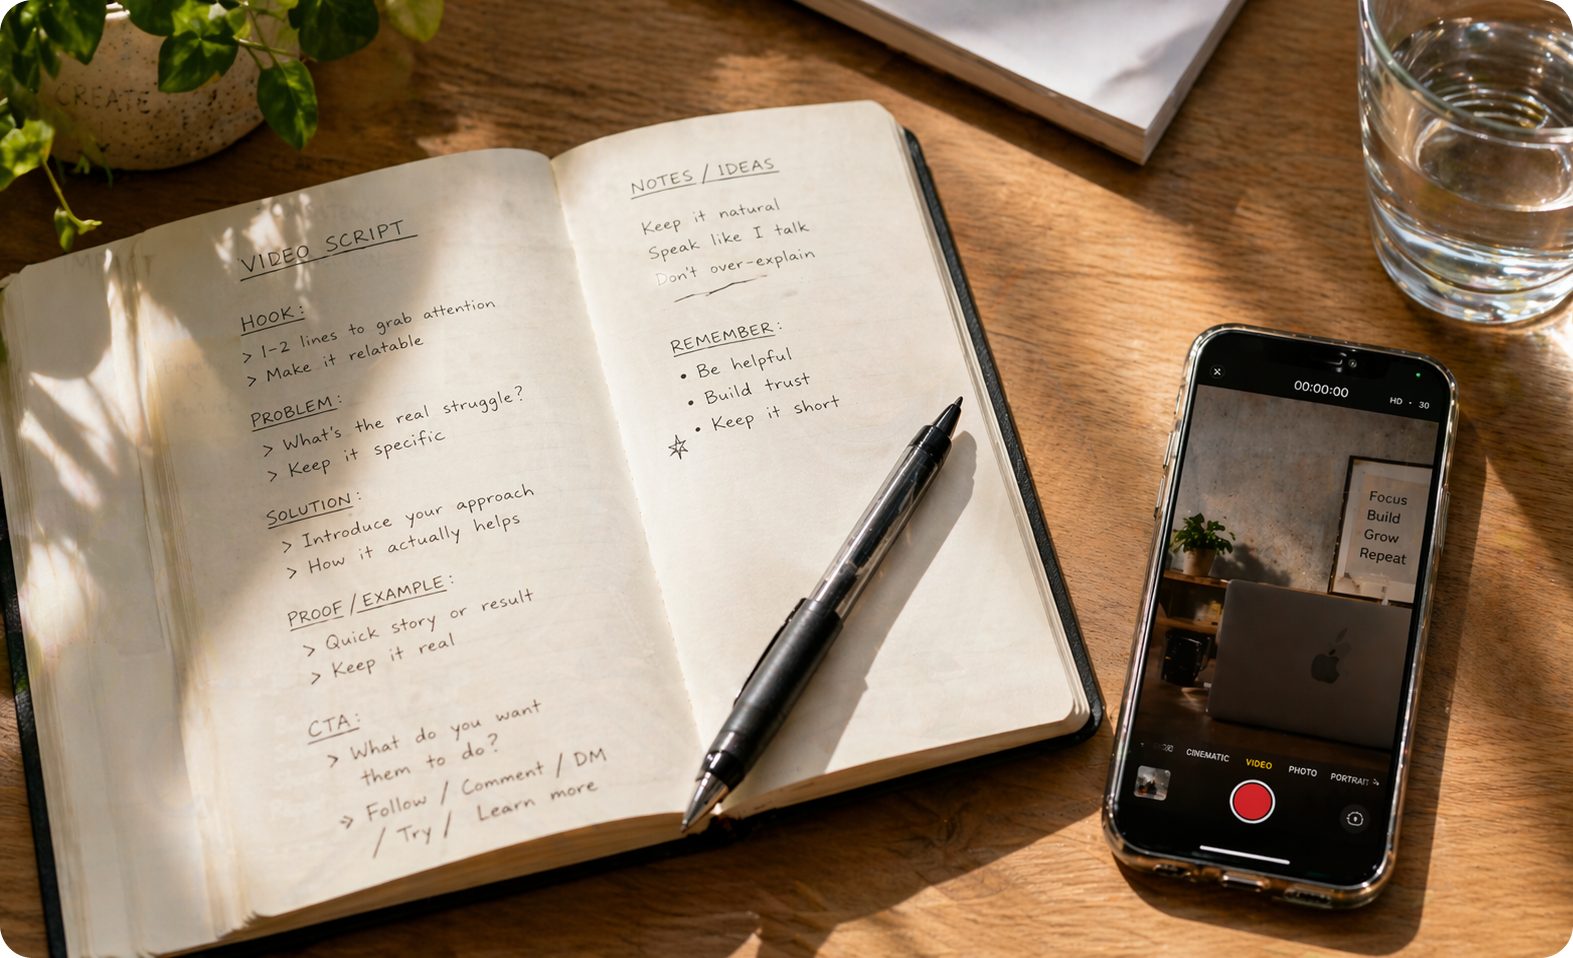 CREATE
VIDEO SCRIPT
HOOK:
> 1-2 lines to grab attention
> Make it relatable
PROBLEM:
> What's the real struggle?
> Keep it specific
SOLUTION:
> Introduce your approach
> How it actually helps
PROOF/EXAMPLE:
> Quick story or result
> Keep it real
CTA:
> What do you want
them to do?
> Follow / Comment / DM
/ Try / Learn more
NOTES / IDEAS
Keep it natural
Speak like I talk
Don't over-explain
REMEMBER:
• Be helpful
• Build trust
• Keep it short
00:00:00
HD · 30
Focus
Build
Grow
Repeat
CINEMATIC
VIDEO
PHOTO